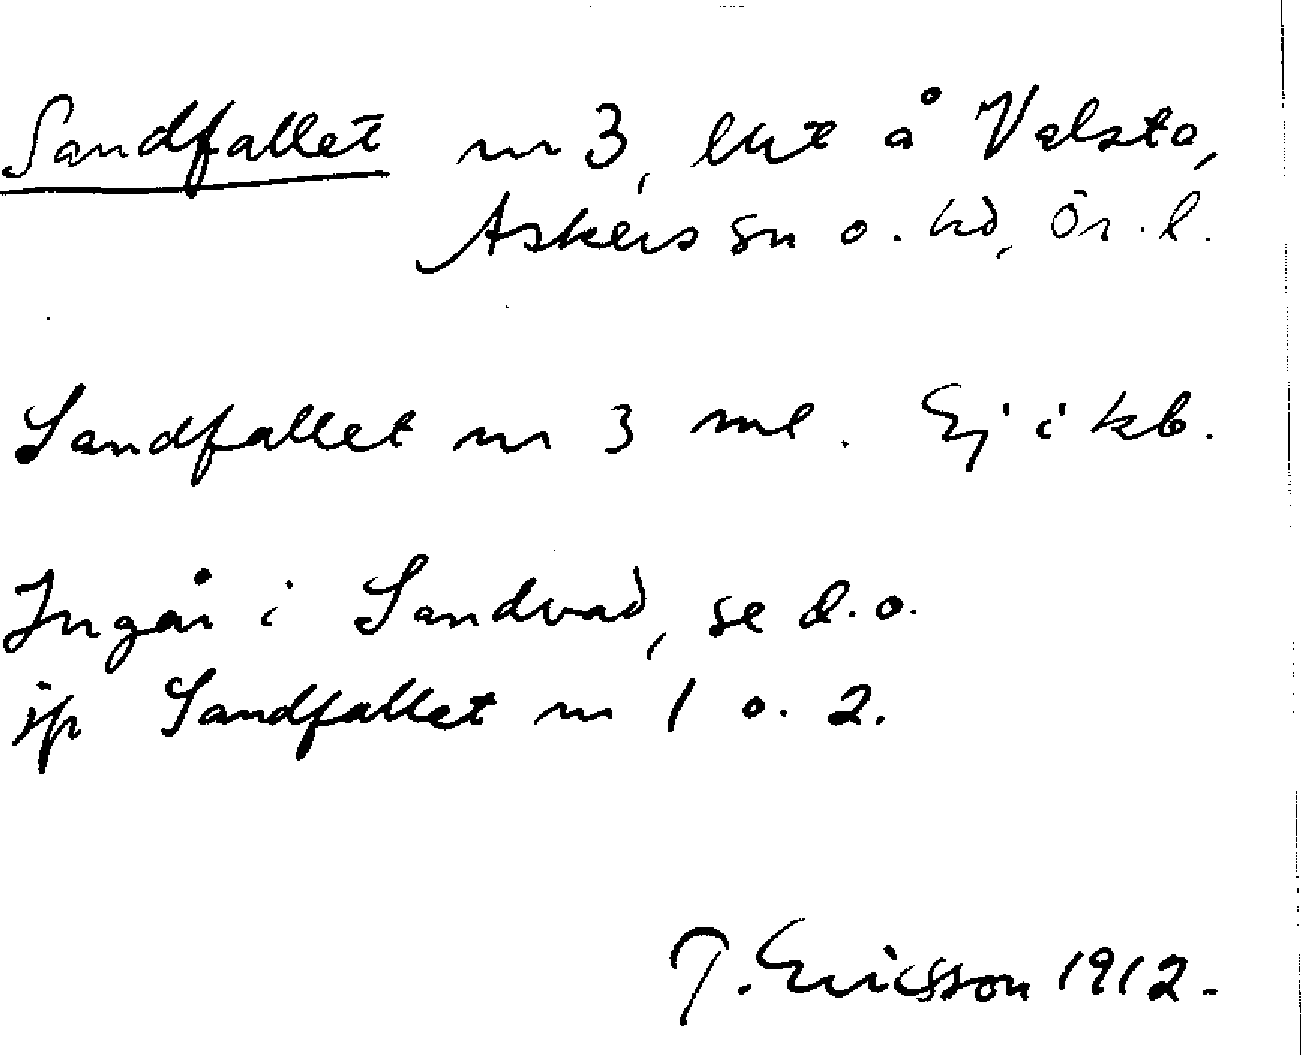 Sandfallet nr 3, lht å Valsta,
Askers sn o. hd, Ör. l.
Sandfallet nr 3 ml. Ej i kb.
Ingår i Sandvad, se d.o.
jfr Sandfallet nr 1 o. 2.
J. Ericsson 1912.